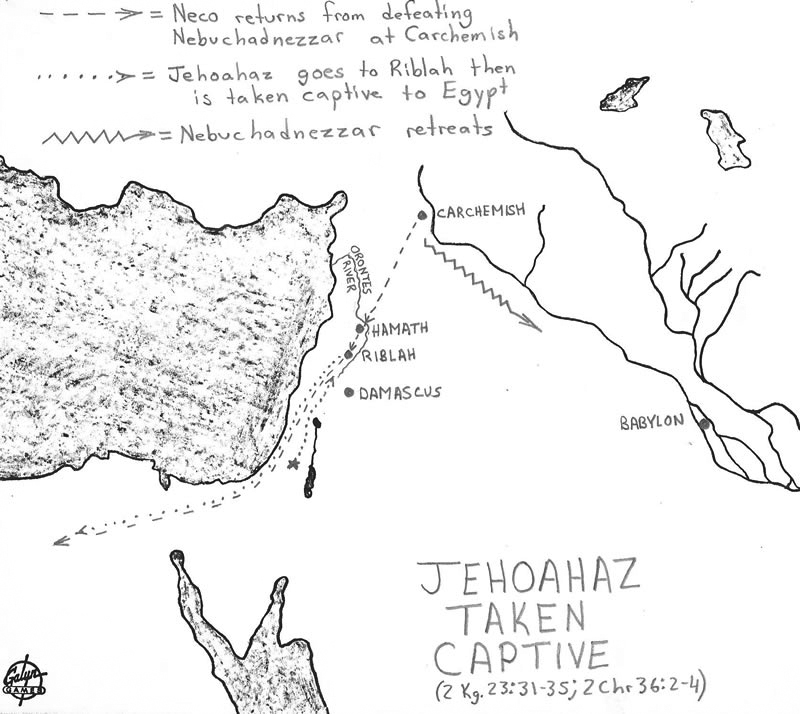 = Neco returns from defeating
Nebuchadnezzar at Carchemish
= Jehoahaz goes to Riblah then
is taken captive to Egypt
= Nebuchadnezzar retreats
CARCHEMISH
ORONTES
RIVER
HAMATH
RIBLAH
DAMASCUS
BABYLON
JEHOAHAZ
TAKEN
CAPTIVE
(2 Kg. 23:31-35; 2 Chr 36:2-4)
Galyn
GAMES